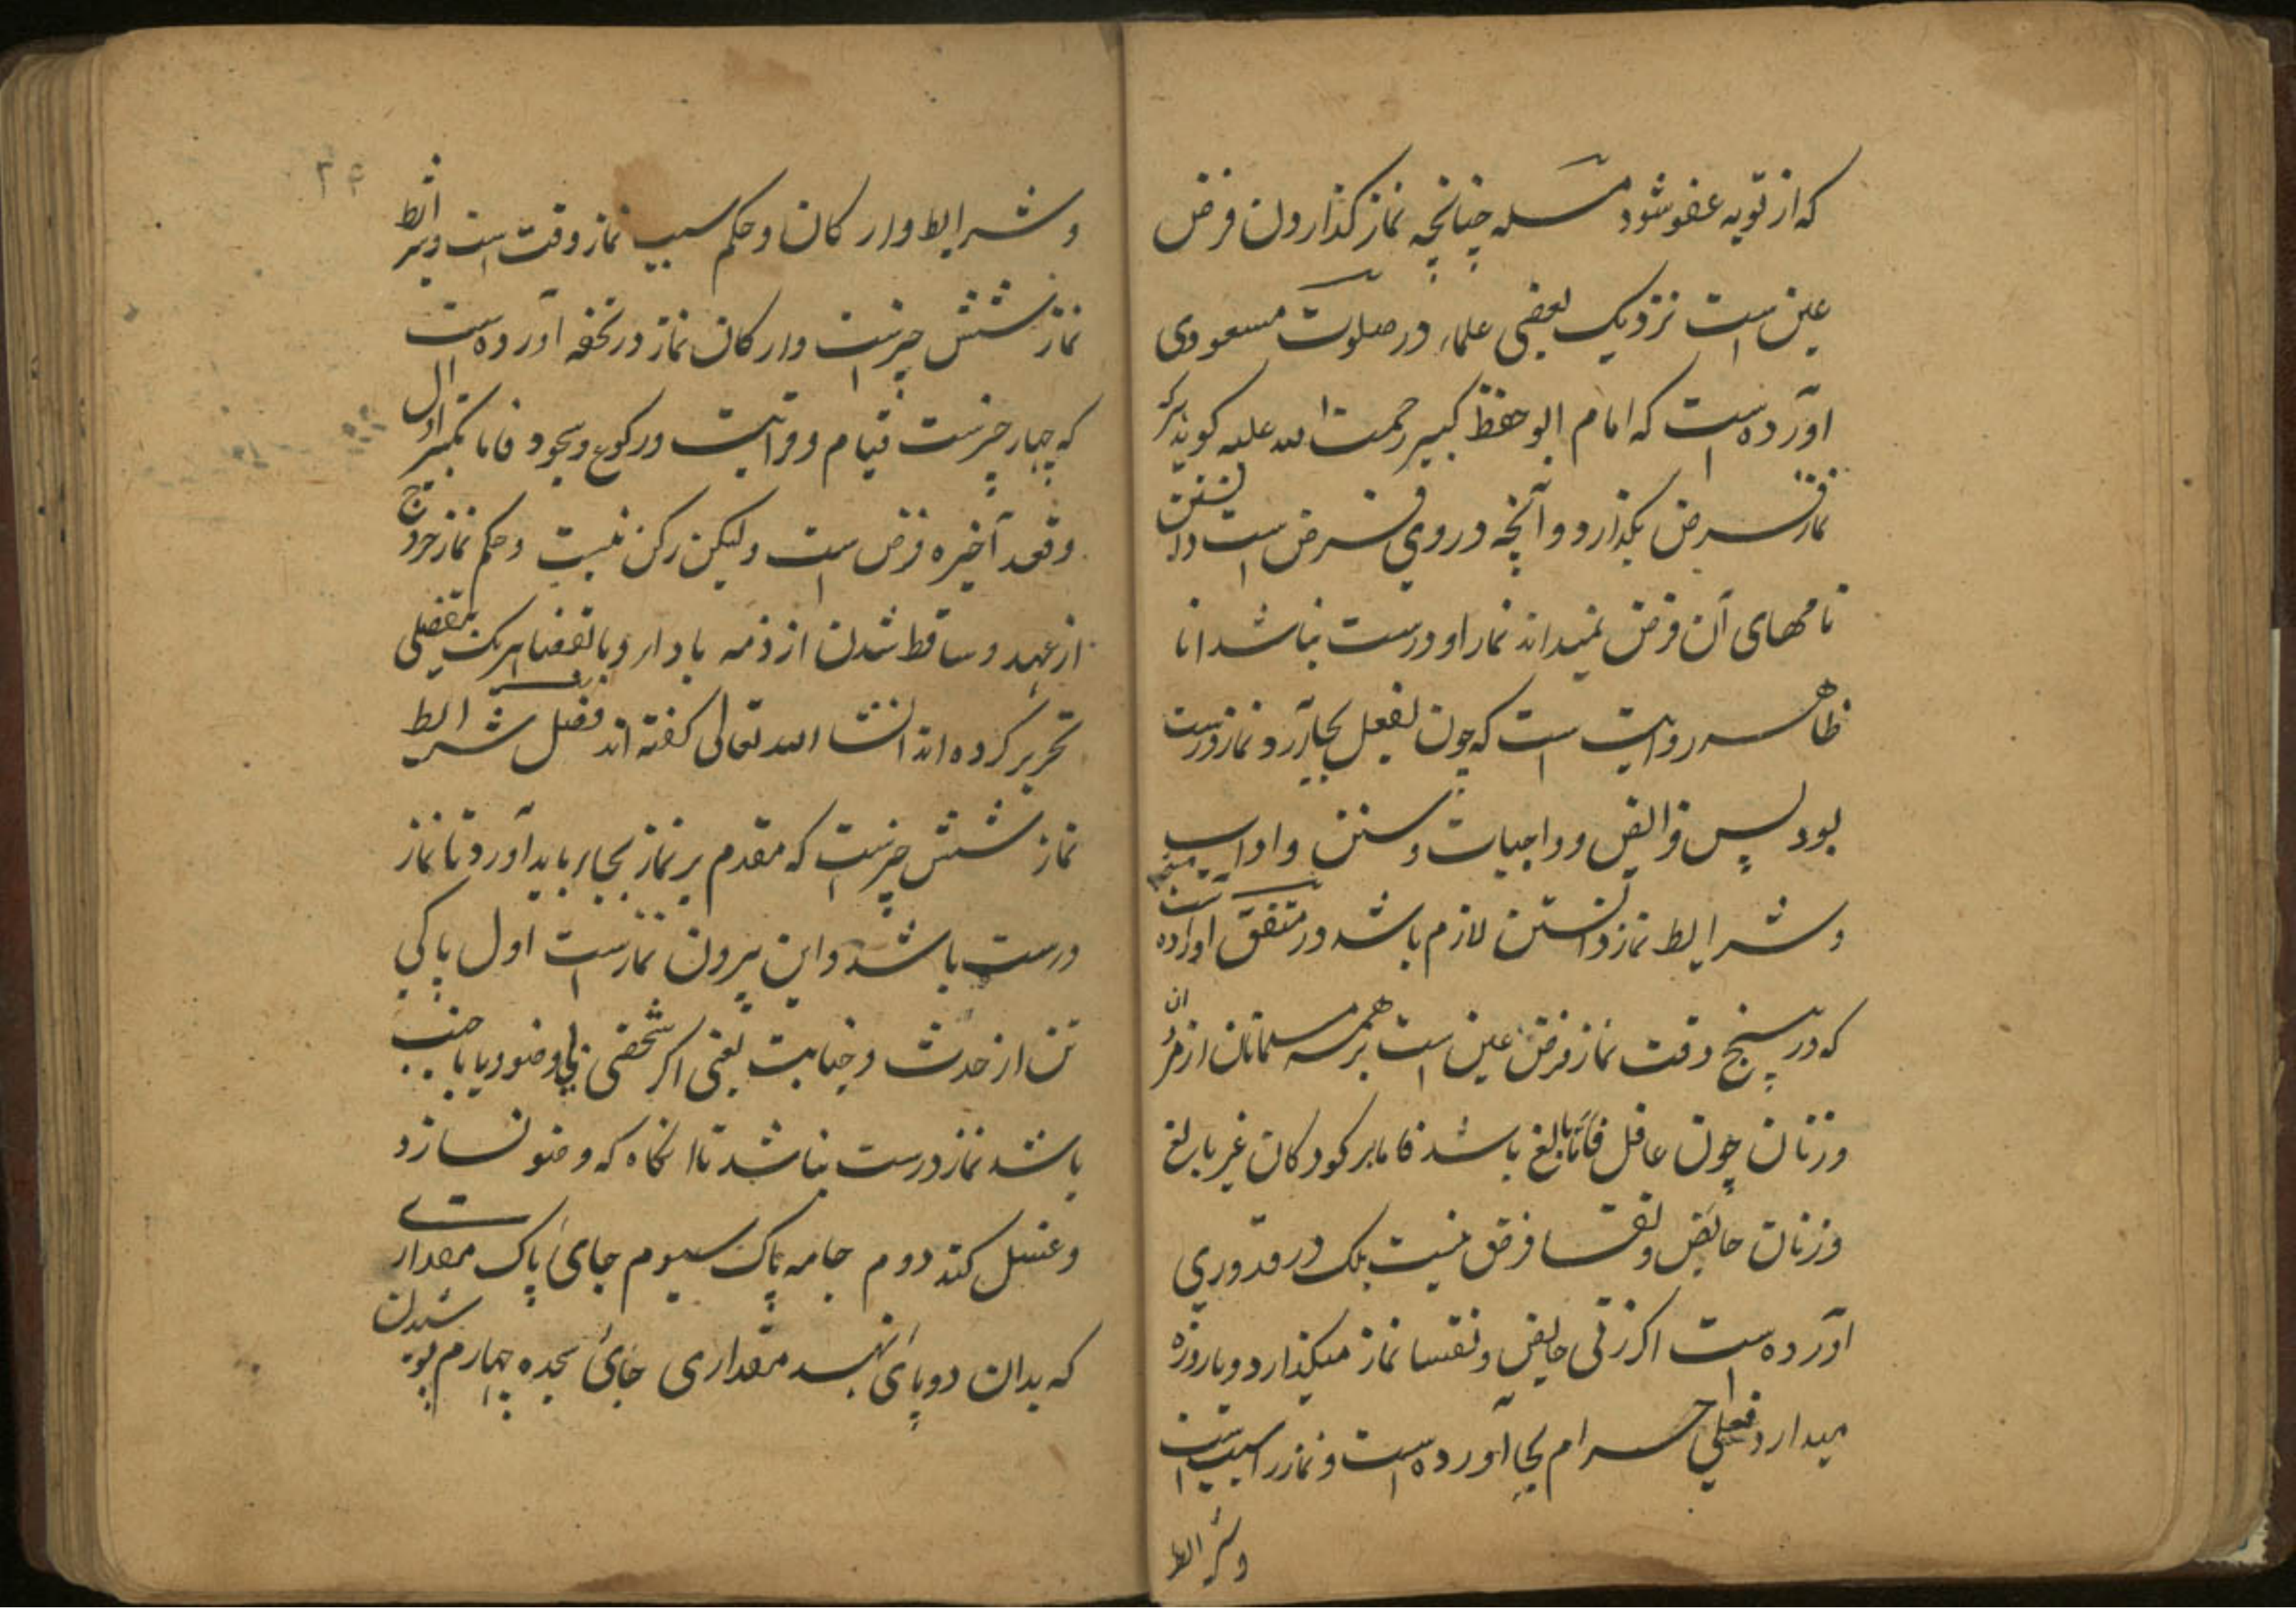 که از توبه عفو شود مسله چنانچه نماز گذاردن فرض
عین است نزدیک بعضی علماء در صلوت مسعودی
آورده است که امام ابو حفظ کبیر رحمت الله علیه گوید هرکه
نماز فرض بگذارد و آنچه در وی فرض است دانستن
نامهای آن فرض نمیداند نماز او درست نباشد اما
ظاهر روایت است که چون بفعل بجا آرد نماز درست
بود پس فرایض و واجبات و سنن و آداب
و شرایط نماز دانستن لازم باشد در متفق آورده است
که در پنج وقت نماز فرض عین است بر همه مسلمانان از مردان
و زنان چون عاقل بالغ باشد فاما بر کودکان غیر بالغ
و زنان حائض و نفسا فرض نیست بلک در قدوری
آورده است اگر زنی حایض و نفسا نماز میگذارد و یا روزه
میدارد فعلی حرام بجا آورده است و نماز را سبب است
و شرایط
۲۴
و شرایط و ارکان و حکم سبب نماز وقت است و شرایط
نماز شش چیز است و ارکان نماز در تحفه آورده است
که چهار چیز است قیام و قرائت و رکوع و سجود فاما تکبیر اول
و قعده آخیره فرض است ولیکن رکن نیست و حکم نماز خروج
از عهده و ساقط شدن از ذمه بادا و بالقضا هریک بتفصیلی
تحریر کرده اند انشا الله تعالی گفته اند فصل شرایط
نماز شش چیز است که مقدم بر نماز بجا باید آورد تا نماز
درست باشد و این بیرون نماز است اول پاکی
تن از حدث و جنابت یعنی اگر شخصی بی وضو و یا با جنب
باشد نماز درست نباشد تا انگاه که وضو نسازد
و غسل کند دوم جامه پاک سیوم جای پاک مقداری
که بدان دو پای نهد مقداری جای سجده چهارم پوشیدن